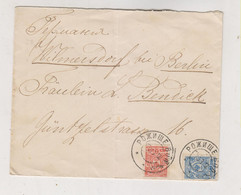 Германія
Wilmersdorf bei Berlin
Fräulein L. Bendick
Güntzelstrasse 16.
РОЖИЩЕ